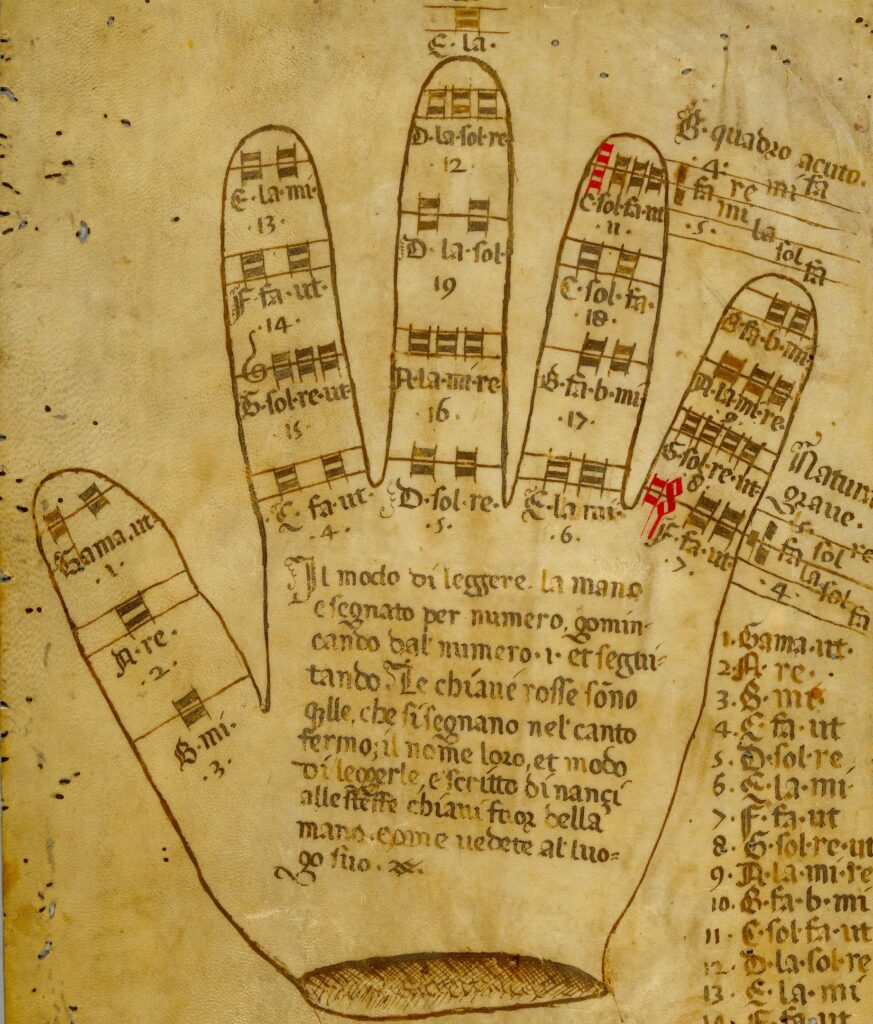 E·la·
Gama·ut·
·1·
A·re·
·2·
B·mi·
·3·
E·la·mi·
·13·
F·fa·ut·
·14·
G·sol·re·ut·
15·
C·fa·ut·
·4·
D·la·sol·re
·12·
D·la·sol·
19
A·la·mi·re
16
D·sol·re·
·5·
C·sol·fa·ut
11
C·sol·fa·
18·
B·fa·b·mi
·17·
E·la·mi·
·6·
B·fa·b·mi·
A·la·mi·re·
9
G·sol·re·ut
8
F·fa·ut·
·7·
B·quadro acuto.
·4·
fa re mi fa
·5·
mi la sol fa
grave.
5·
fa sol re
la
·4·
sol fa
Il modo di leggere la mano
e segnato per numero, comin-
ciando dal numero·1· et segui-
tando. Le chiave rosse sono
q̃lle, che si segnano nel canto
fermo; il nome loro, et modo
di leggerle, e scritto dinançi
alle stesse chiavi fuor della
mano come vedete al luo-
go suo.
1·Gama·ut·
2·A·re·
3·B·mi·
4·C·fa·ut
5·D·sol·re
6·E·la·mi·
7·F·fa·ut
8·G·sol·re·ut
9·A·la·mi·re
10·B·fa·b·mi
11·C·sol·fa·ut
12·D·la·sol·re
13·E·la·mi
14·F·fa·ut